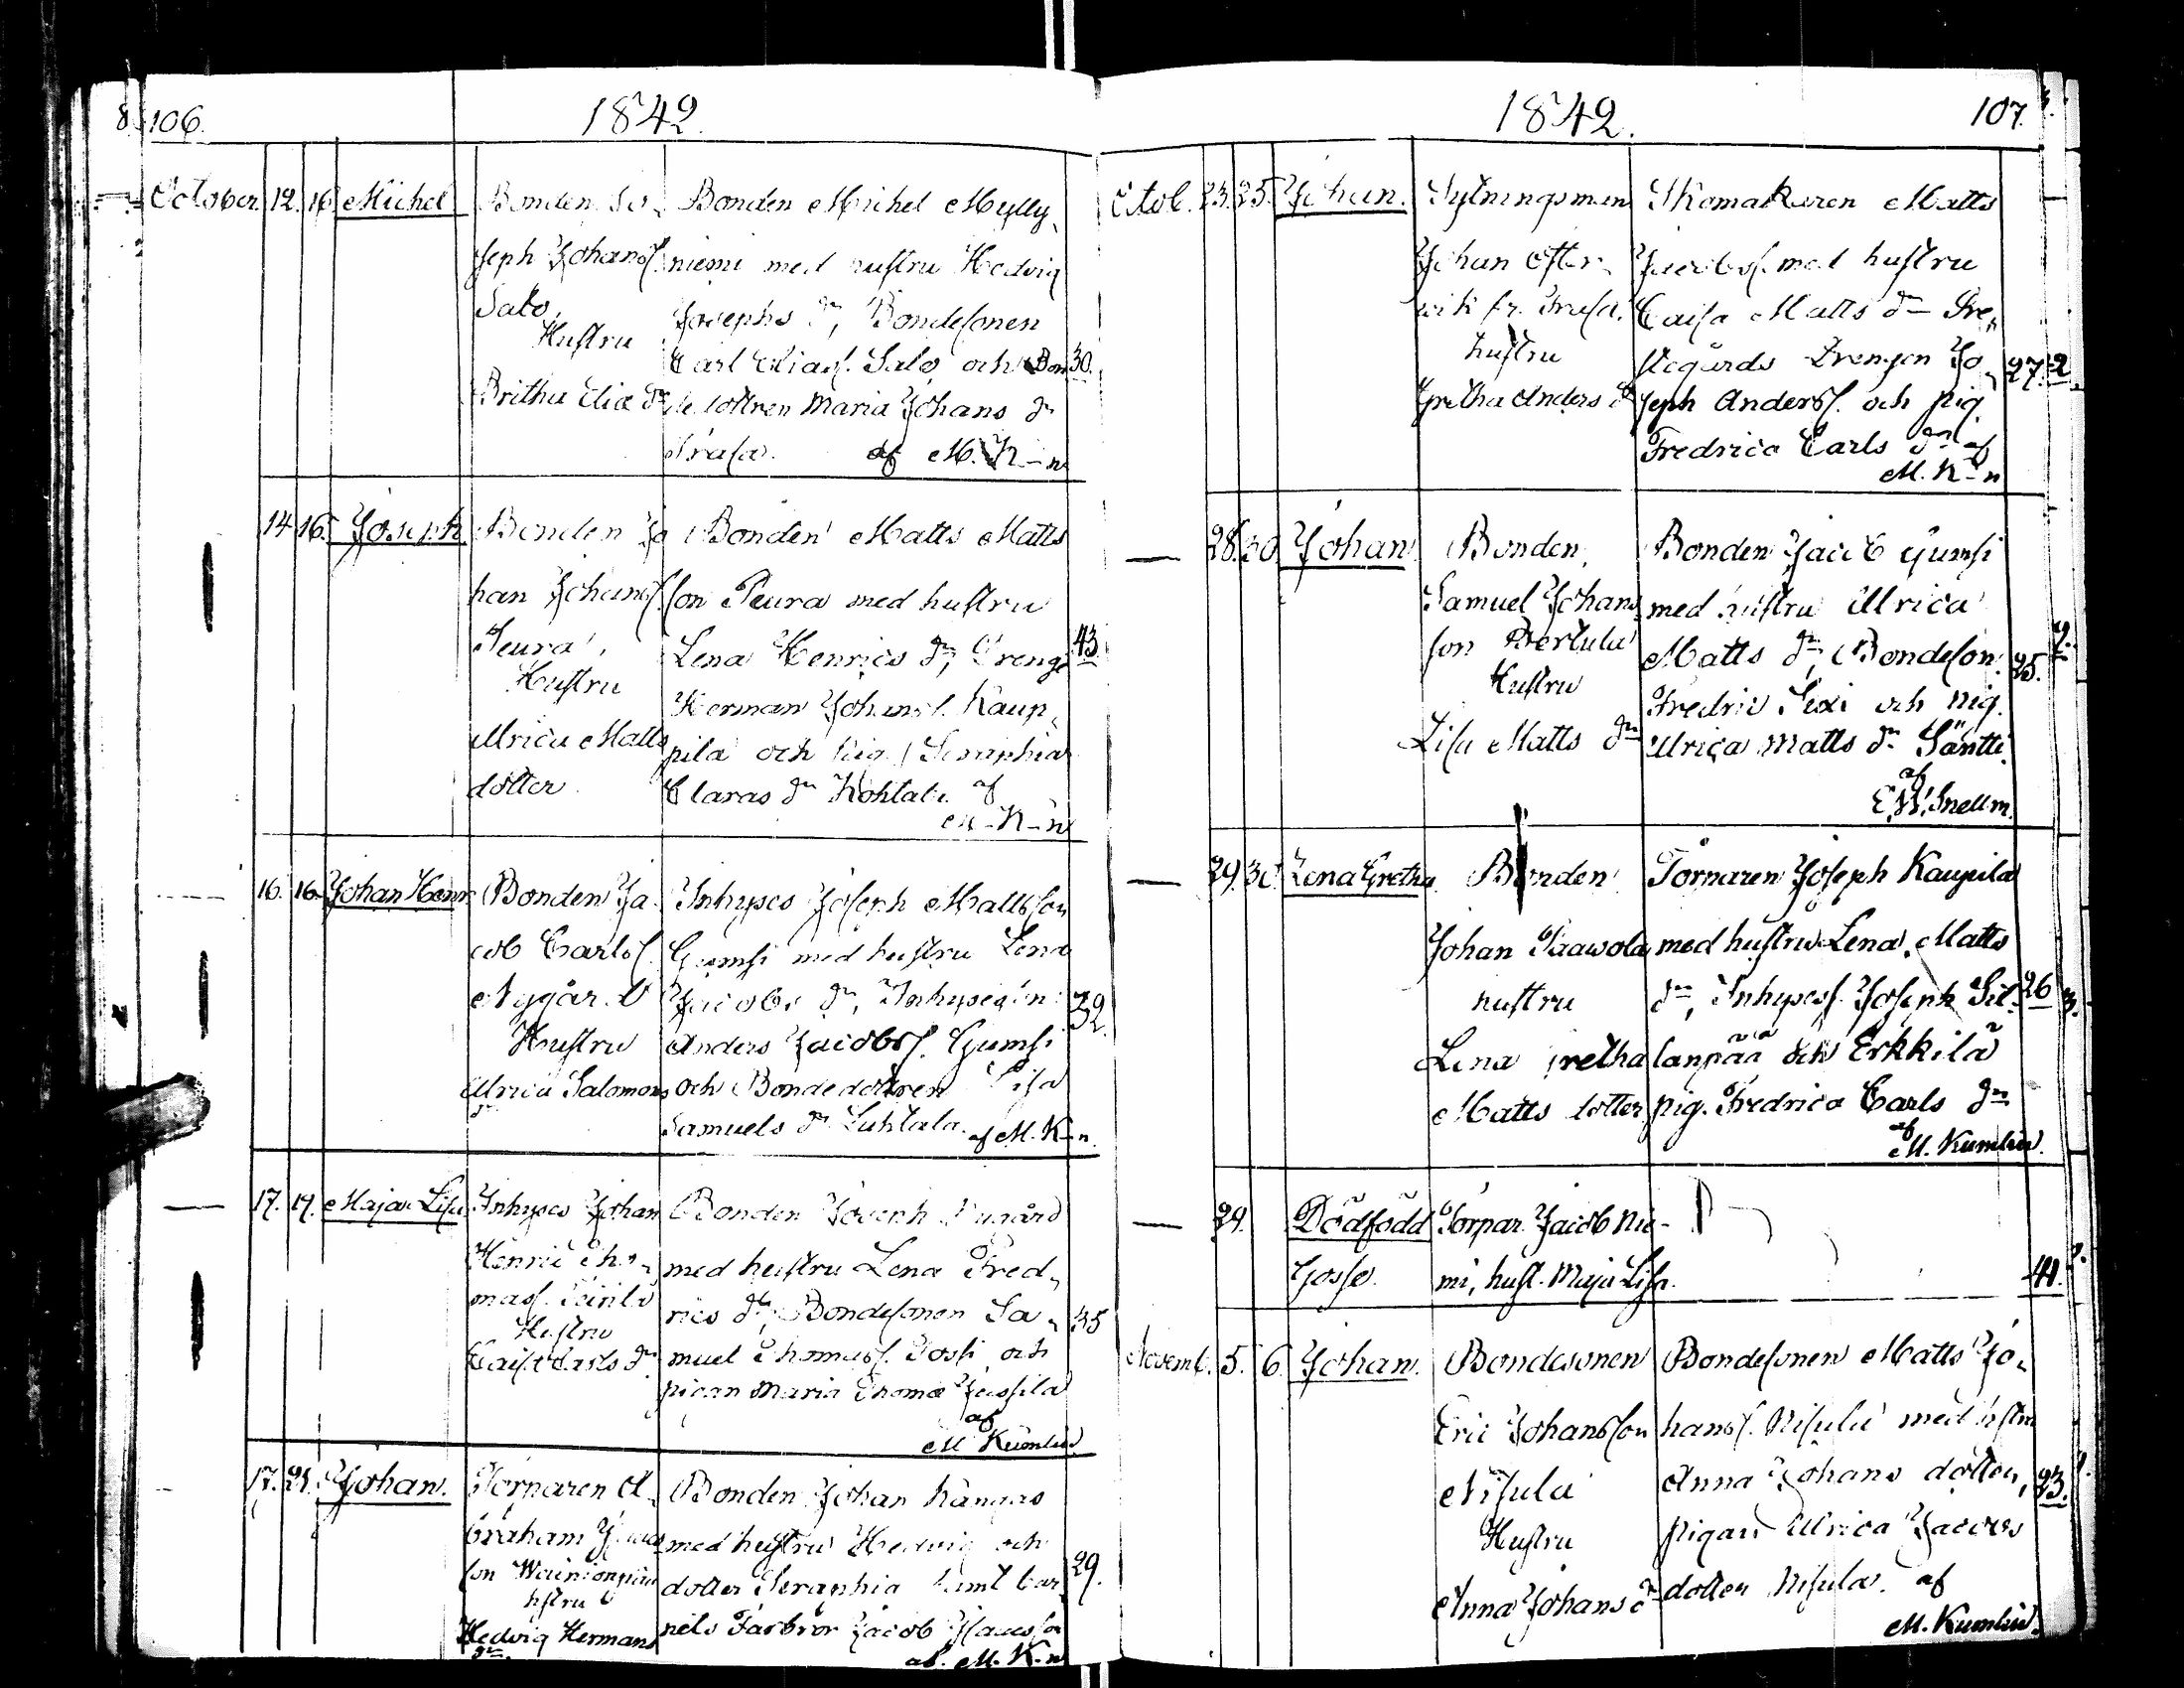 106.
1842.
October 12. 16. Michel Bonden Jo-
seph Johans.
Salo,
Hustru
Britha Eliæ dr
Bonden Michel Mylly-
niemi med hustru Hedvig
Josephs dr, Bondesonen
Carl Eliass. Salo och Bon
dedottren Maria Johans dr
af M. K-n
30.
14 16. Joseph Bonden Jo
han Johans.
Peura,
Hustru
Ulrica Matts
dotter
Bonden Matts Matts
son Peura med hustru
Lena Henrics dr, Dreng
Herman Johanss. Kaup-
pila och Pig. Seraphia
Claras dr af
M-K-n
43.
16. 16. Johan Henr. Bonden Ja
cob Carls.
Nygård
Hustru
Ulrica Salomons
dr
Inhyses Joseph Mattsson
Gumsi med hustru Lena
Jacobs dr, Inhyses
Anders Jacobs. Gumsi
och Bondedottren Lisa
Samuels dr af M. K-n.
32.
17. 19. Maja Lisa Inhyses Johan
Henric Tho-
mas.
Hustru
Caisa Carls dr
Bonden Joseph Nygård
med hustru Lena Fred-
rics dr, Bondesonen Sa-
muel Thomass. och
pigan Maria Thomæ Jussila
af
M Kumlin
35
17. Johan. Torparen A-
braham
son
hstru
Hedvig Hermans
dr.
Bonden Johan Kangas
med hustru Hedvig och
dotter Seraphia samt bar
nets Farbror Jacob
af. M. K-n
29.
1842.
107.
Octob. 23. 25. Johan. Sytningsman
Johan Öster-
vik fr.
hustru
Gretha Anders dr
Skomakaren Matts
Jacobss. med hustru
Caisa Matts dr
Drengen Jo-
seph Anderss. och pig.
Fredrica Carls dr af
M. K-n
27. 2.
28. 30. Johan Bonden
Samuel Johans
son Perttula
Hustru
Lisa Matts dr
Bonden Jacob Gumsi
med hustru Ulrica
Matts dr, Bondeson.
Fredric och pig.
Ulrica Matts dr Säntti.
af
Snellm.
25. 2.
29. 30. Lena Gretha Bonden
Johan Paavola
hustru
Lena Gretha
Matts dotter
Torparen Joseph Kaupila
med hustru Lena Matts
dr, Inhysess. Joseph Sil-
lanpää och Erkkilä
pig. Fredrica Carls dr
af
M. Kumlin.
26 3.
29. Dödfödd Torpar. Jacob Nie-
Gosse. mi, hust. Maja Lisa.
41. 2.
Novemb. 5. 6. Johan. Bondesonen
Eric Johansson
Nisula
Hustru
Anna Johans dr
Bondesonen Matts Jo-
hans. Nisula med hstru
Anna Johans dotter,
pigan Ulrica Jacobs
dotter Nisula. af
M. Kumlin.
23. 1.